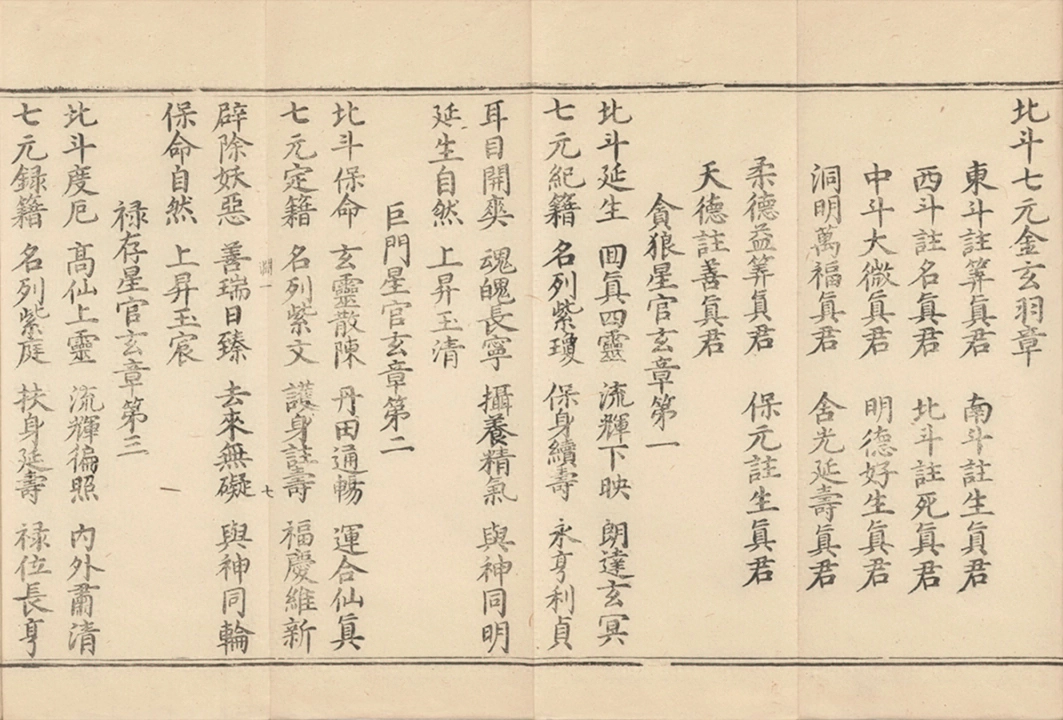 北斗七元金玄羽章
東斗註筭眞君 南斗註生眞君
西斗註名眞君 北斗註死眞君
中斗大微眞君 明德好生眞君
洞明萬福眞君 含光延壽眞君
柔德益筭眞君 保元註生眞君
天德註善眞君
貪狼星官玄章第一
北斗延生 回眞四靈 流輝下映 朗達玄冥
七元紀籍 名列紫瓊 保身續壽 永亨利貞
耳目開爽 魂魄長寧 攝養精氣 與神同明
延生自然 上昇玉清
巨門星官玄章第二
北斗保命 玄靈散陳 丹田通暢 運合仙眞
七元定籍 名列紫文 護身註壽 福慶維新
一 七
辟除妖惡 善瑞日臻 去來無礙 與神同輪
保命自然 上昇玉宸
禄存星官玄章第三
北斗度厄 高仙上靈 流輝徧照 內外肅清
七元録籍 名列紫庭 扶身延壽 禄位長亨